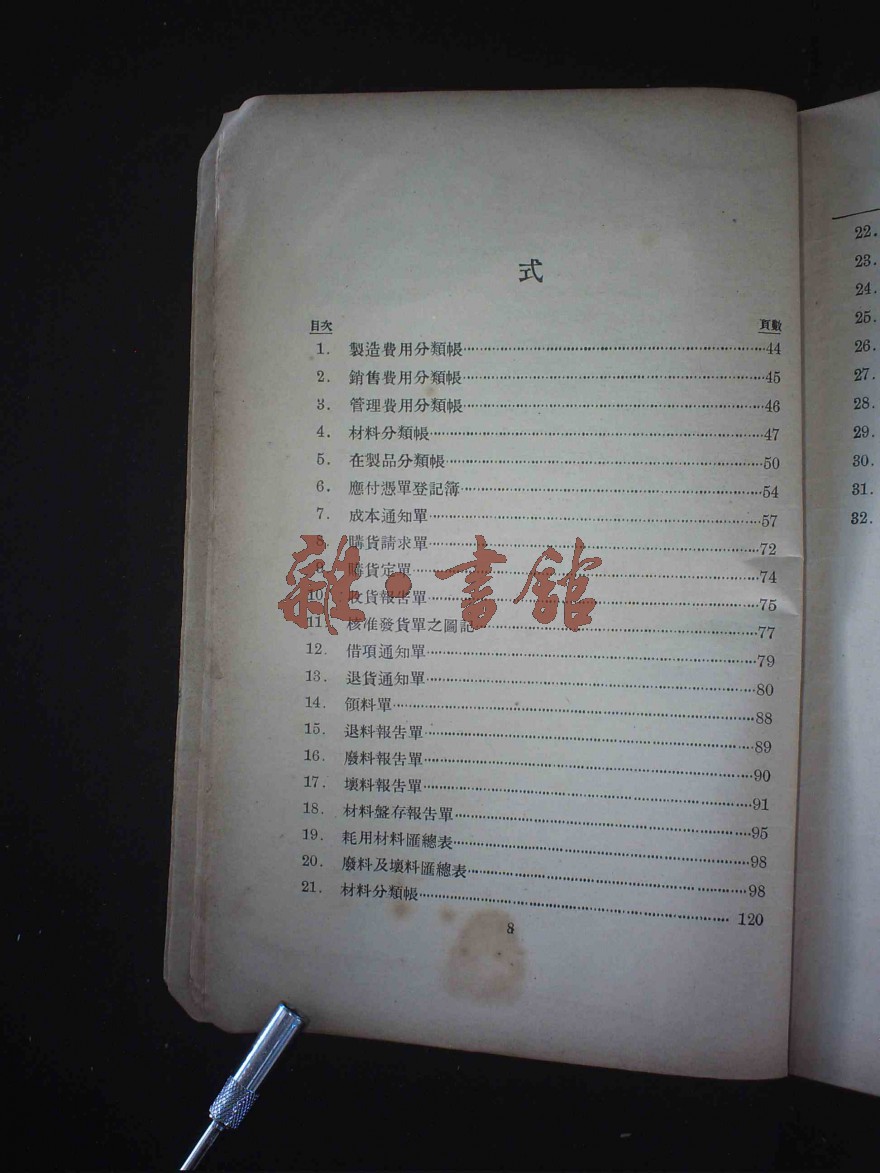 式
目次 頁數
1. 製造費用分類帳 44
2. 銷售費用分類帳 45
3. 管理費用分類帳 46
4. 材料分類帳 47
5. 在製品分類帳 50
6. 應付憑單登記簿 54
7. 成本通知單 57
8. 購貨請求單 72
9. 購貨定單 74
10. 收貨報告單 75
11. 核准發貨單之圖記 77
12. 借項通知單 79
13. 退貨通知單 80
14. 領料單 88
15. 退料報告單 89
16. 廢料報告單 90
17. 壞料報告單 91
18. 材料盤存報告單 95
19. 耗用材料匯總表 98
20. 廢料及壞料匯總表 98
21. 材料分類帳 120
8
雜·書館
22.
23.
24.
25.
26.
27.
28.
29.
30.
31.
32.